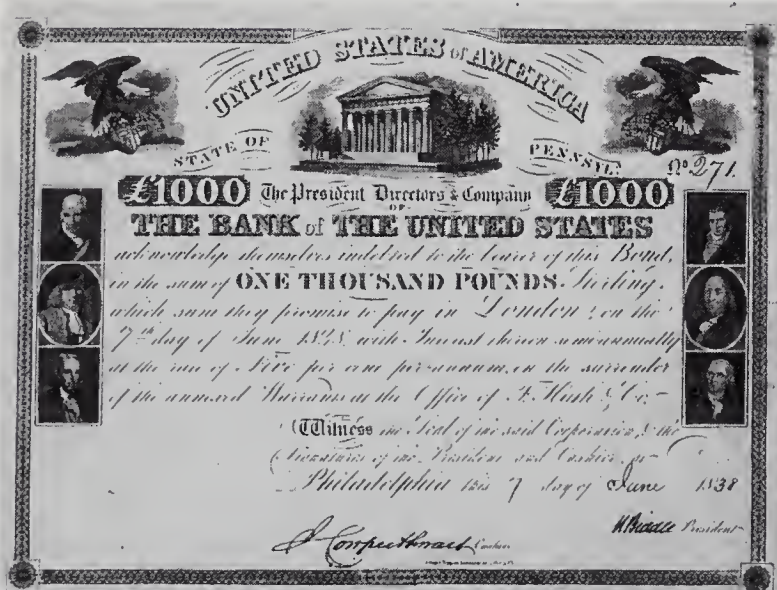 UNITED STATES of AMERICA
STATE OF PENNSYLA.
No 271.
£1000 The President Directors & Company £1000
OF
THE BANK of THE UNITED STATES
acknowledge themselves indebted to the bearer of this Bond,
in the sum of ONE THOUSAND POUNDS. Sterling,
which sum they promise to pay in London, on the
7th day of June with Interest thereon semiannually
at the rate of Five per cent per annum, on the surrender
of the annexed Warrants at the Office of & Co.
Witness the Seal of the said Corporation, & the
Signatures of the President and Cashier, at
Philadelphia this 7 day of June 1838
N Biddle President
J Cowperthwait Cashier